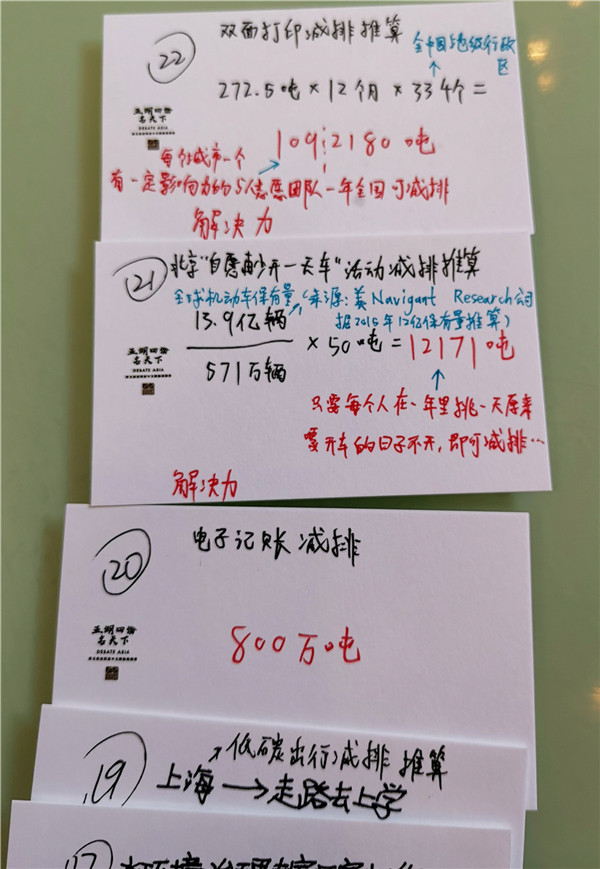 22
双面打印减排推算
全中国地级行政区
272.5吨×12个月×334个=
109,2180吨
亚湖四海
名天下
DEBATE ASIA
每个城市一个
有一定影响力的5人志愿团队一年全国可减排
解决力
21
北京"自愿每少开一天车"活动减排推算
全球机动车保有量(来源:美Navigant Research公司
据2015年12亿保有量推算)
13.9亿辆
571万辆
×50吨=12171吨
DEBATE ASIA
只需每个人在一年里挑一天原来
要开车的日子不开,即可减排…
解决力
20
电子记账减排
DEBATE ASIA
800万吨
19
低碳出行减排推算
上海→走路去上学
17